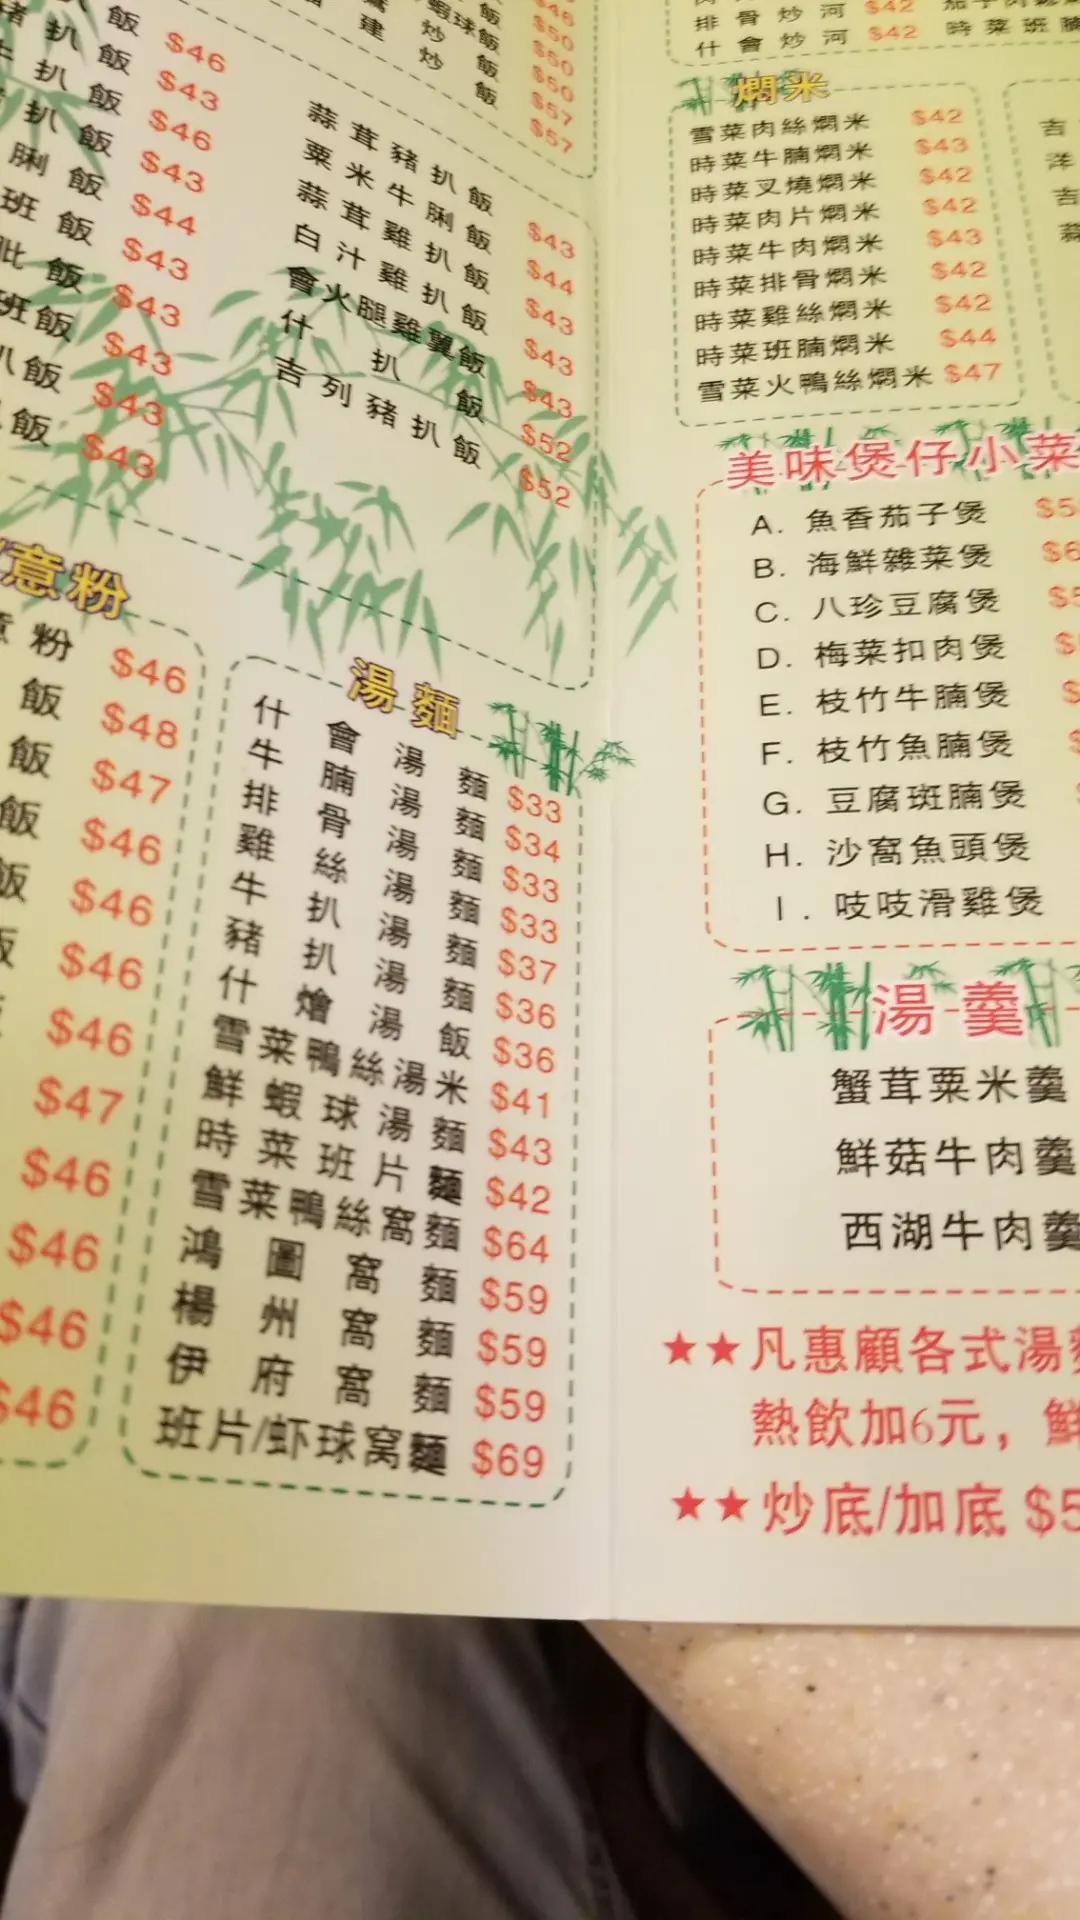 飯 $46
豬扒飯 $43
牛扒飯 $46
扒飯 $43
脷飯 $44
班飯 $43
飯 $43
班飯 $43
扒飯 $43
飯 $43
$46
蝦球飯 $50
炒飯 $50
建炒飯 $50
$57
$57
蒜茸豬扒飯 $43
粟米牛脷飯 $44
蒜茸雞扒飯 $43
白汁雞扒飯 $43
會火腿雞翼飯 $43
什扒飯 $52
吉列豬扒飯 $52
意粉
意粉 $46
飯 $48
飯 $47
飯 $46
飯 $46
飯 $46
$46
$47
$46
$46
$46
$46
湯麵
什會湯麵 $33
牛腩湯麵 $34
排骨湯麵 $33
雞絲湯麵 $33
牛扒湯麵 $37
豬扒湯麵 $36
什燴湯飯 $36
雪菜鴨絲湯米 $41
鮮蝦球湯麵 $43
時菜班片麵 $42
雪菜鴨絲窩麵 $64
鴻圖窩麵 $59
楊州窩麵 $59
伊府窩麵 $59
班片/虾球窝麵 $69
排骨炒河 $42
什會炒河 $42
時菜班腩
燜米
雪菜肉絲燜米 $42
時菜牛腩燜米 $43
時菜叉燒燜米 $42
時菜肉片燜米 $42
時菜牛肉燜米 $43
時菜排骨燜米 $42
時菜雞絲燜米 $42
時菜班腩燜米 $44
雪菜火鴨絲燜米 $47
吉
洋
吉
蒜
美味煲仔小菜
A. 魚香茄子煲
B. 海鮮雜菜煲
C. 八珍豆腐煲
D. 梅菜扣肉煲
E. 枝竹牛腩煲
F. 枝竹魚腩煲
G. 豆腐斑腩煲
H. 沙窩魚頭煲
I. 吱吱滑雞煲
湯羹
蟹茸粟米羹
鮮菇牛肉羹
西湖牛肉羹
★★凡惠顧各式湯麵
熱飲加6元，鮮
★★炒底/加底 $5